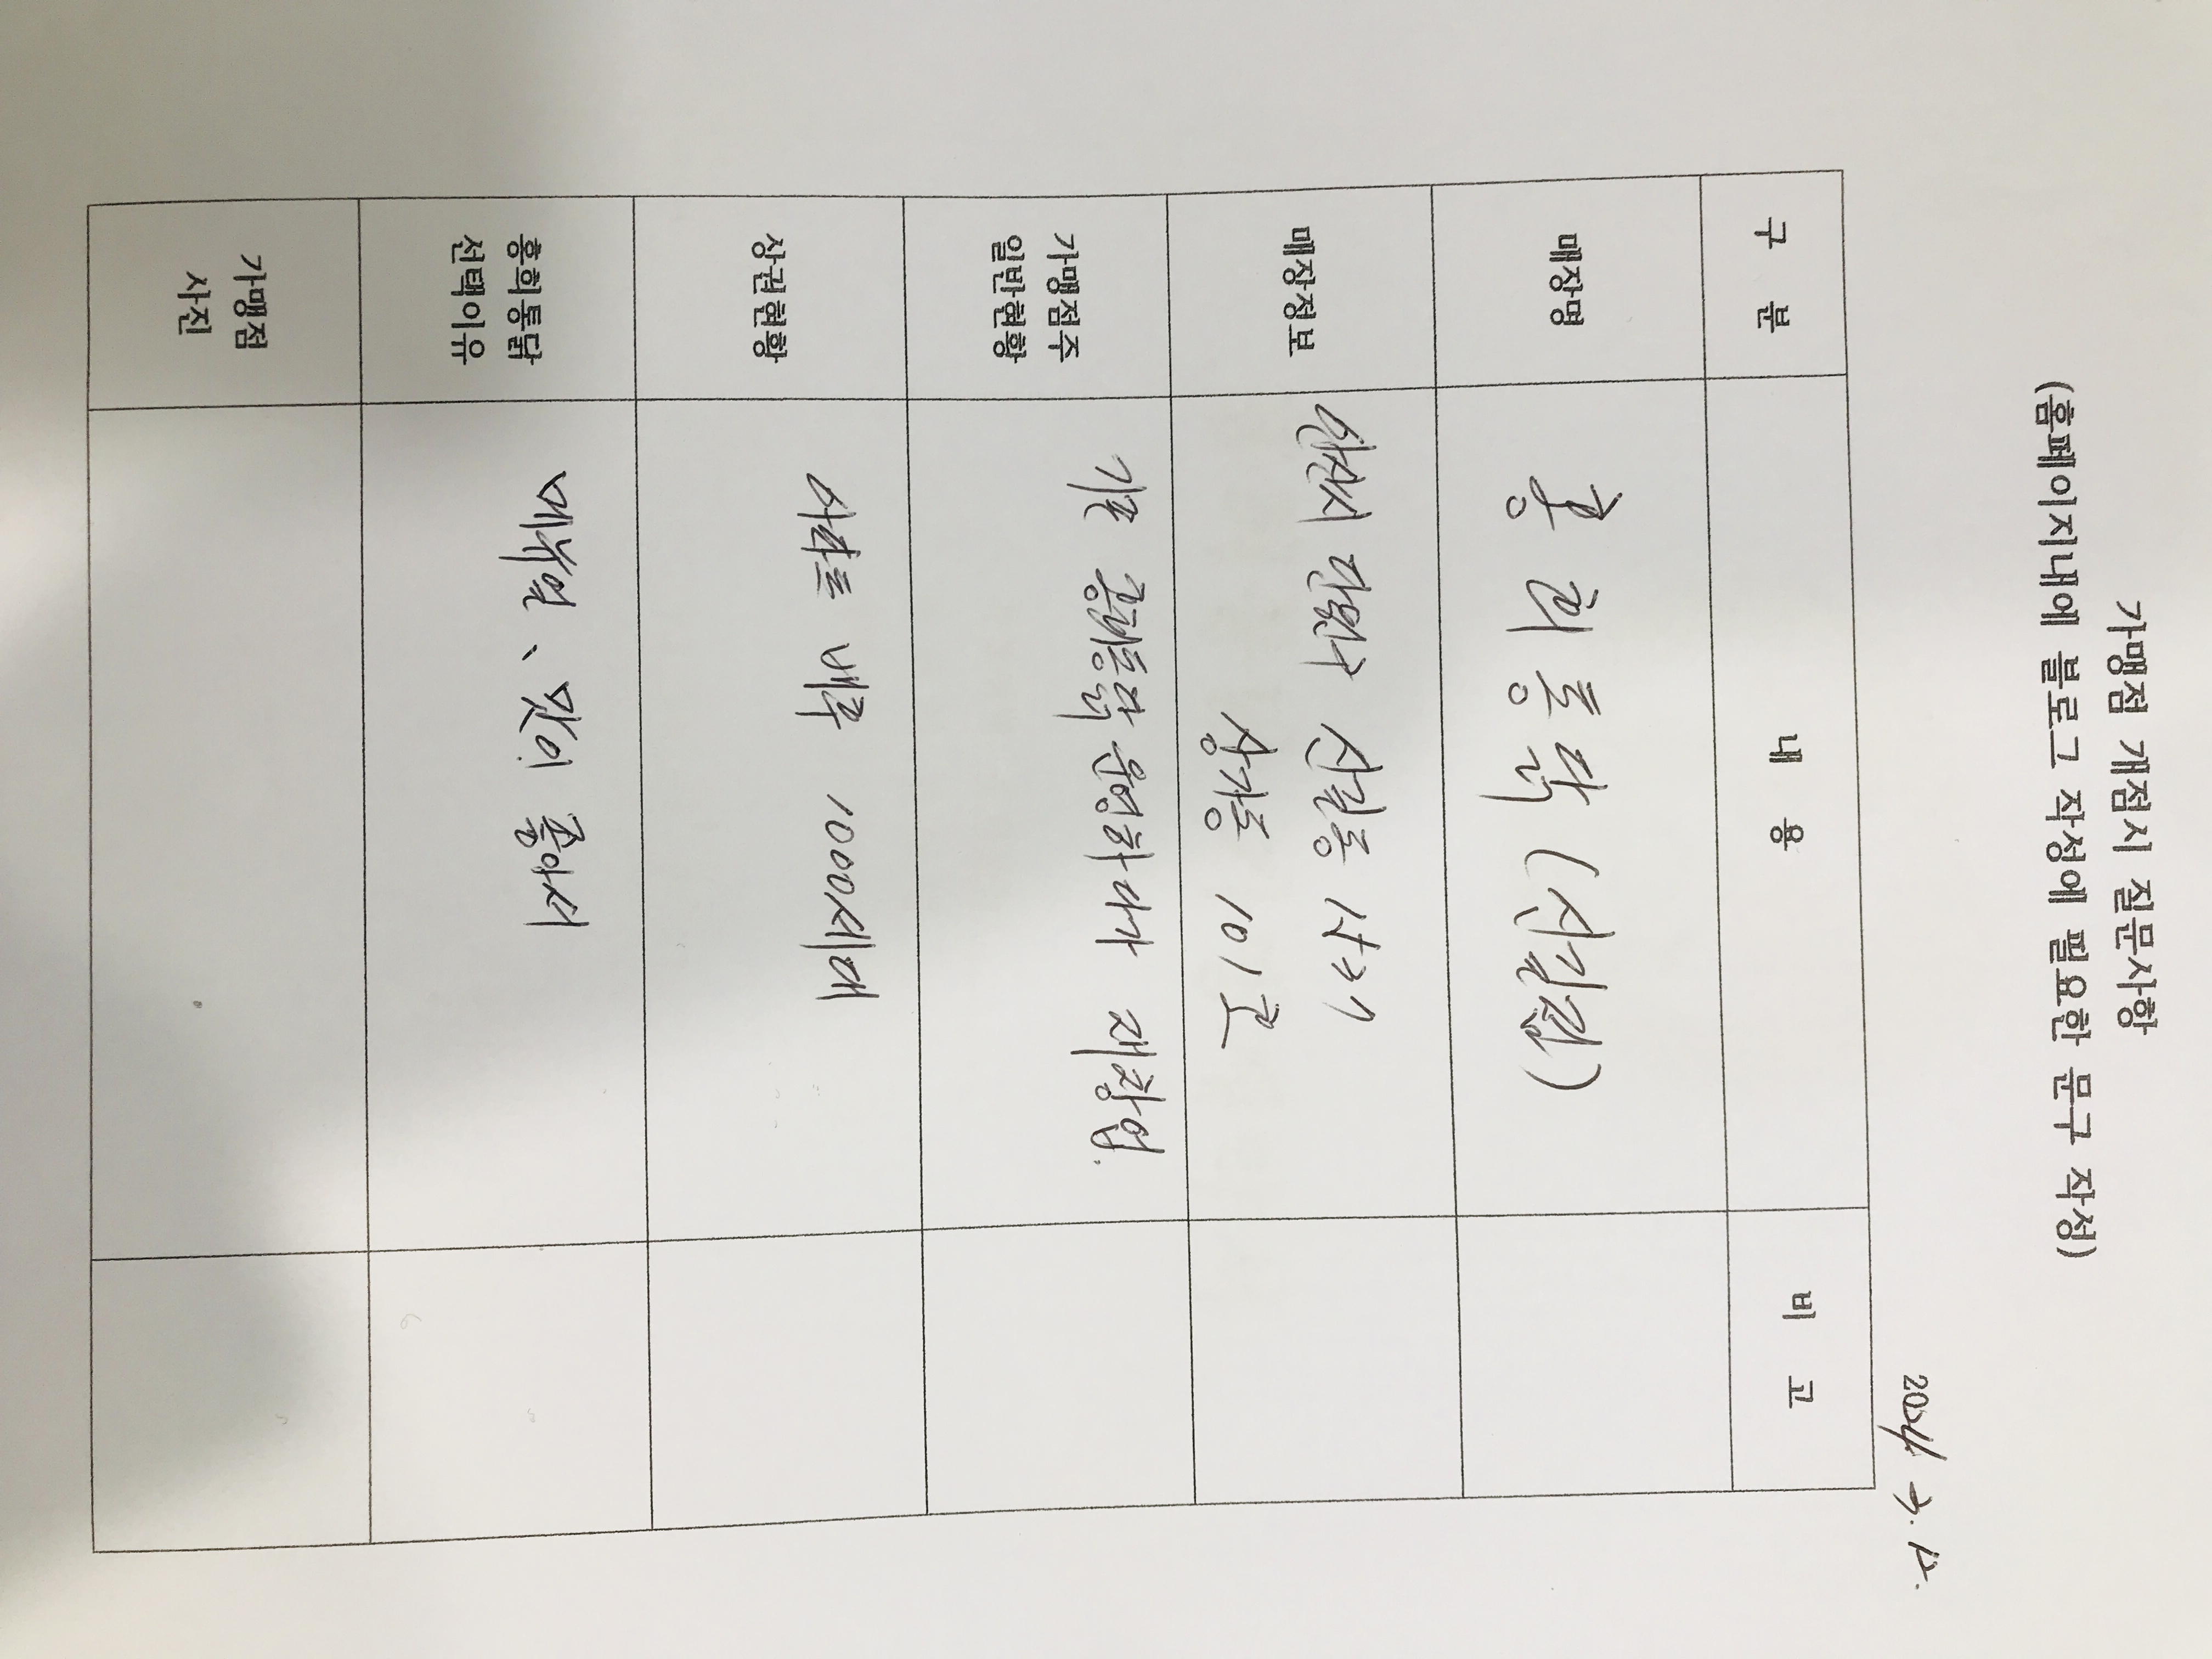 가맹점 개점시 질문사항
(홈페이지내에 블로그 작성에 필요한 문구 작성)
2024. 3. 12.
구 분 내 용 비 고
매장명 홍희통닭 (선길점)
매장정보 안산시 단원구 선길동
상가동 101호
가맹점주
일반현황
기존 통닭 운영하다가 재창업.
상권현황 아파트 배후 1000세대
홍희통닭
선택이유
메뉴얼、맛이 좋아서
가맹점
사진